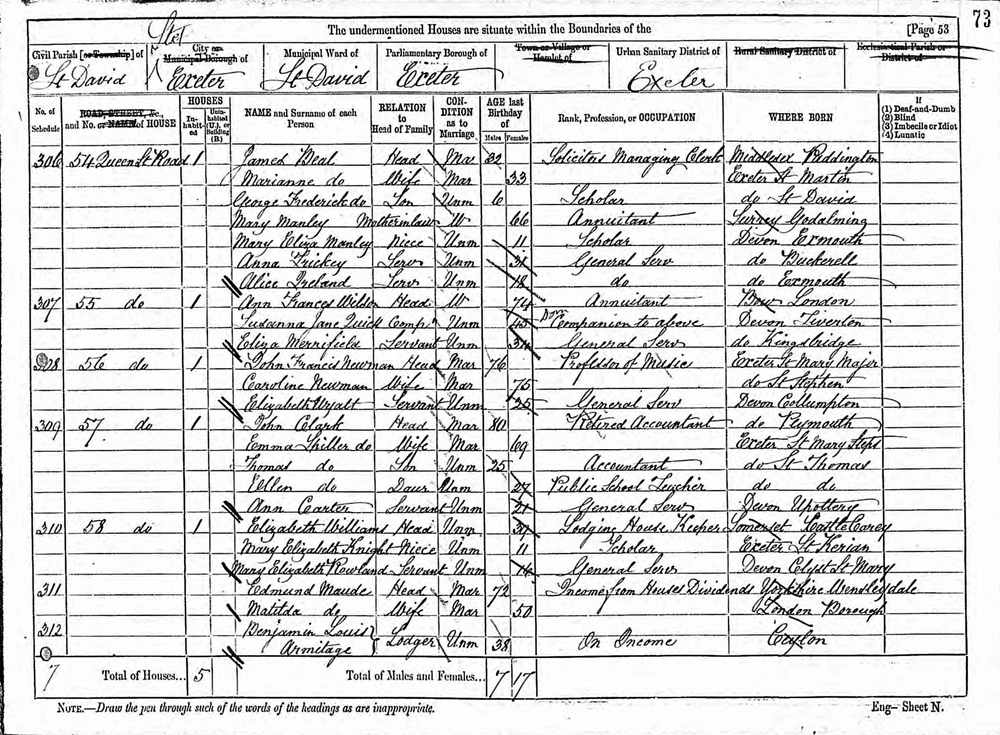 73
The undermentioned Houses are situate within the Boundaries of the [Page 53
Civil Parish [or Township] of St David
City or Municipal Borough of Exeter
Municipal Ward of St David
Parliamentary Borough of Exeter
Town or Village or Hamlet of
Urban Sanitary District of Exeter
Rural Sanitary District of
Ecclesiastical Parish or District of
No. of Schedule
ROAD, STREET, &c., and No. or NAME of HOUSE
HOUSES
In-habit-ed
Unin-habited (U.), or Building (B.)
NAME and Surname of each Person
RELATION to Head of Family
CON-DITION as to Marriage
AGE last Birthday of
Males Females
Rank, Profession, or OCCUPATION
WHERE BORN
If
(1) Deaf-and-Dumb
(2) Blind
(3) Imbecile or Idiot
(4) Lunatic
306 54 Queen St Road 1 James Beal Head Mar 32 Solicitors Managing Clerk Middlesex
Marianne do Wife Mar 33 Exeter St Martin
George Frederick do Son Unm 6 Scholar do St David
Mary Manley Motherinlaw W 66 Annuitant Surrey Godalming
Mary Eliza Manley Niece Unm 11 Scholar Devon Exmouth
Anna Trickey Serv Unm 31 General Serv do Buckerell
Alice Ireland Serv Unm 18 do do Exmouth
307 55 do 1 Ann Frances Head W 74 Annuitant Bow London
Susanna Jane Quick Comp Unm 45 Dom Companion to above Devon Tiverton
Eliza Merrifield Servant Unm 34 General Serv do Kingsbridge
308 56 do 1 John Francis Newman Head Mar 76 Professor of Music Exeter St Mary Major
Caroline Newman Wife Mar 75 do St Stephen
Elizabeth Wyatt Servant Unm 25 General Serv Devon Collumpton
309 57 do 1 John Clark Head Mar 80 Retired Accountant do Plymouth
Emma Skiller do Wife Mar 69 Exeter St Mary Steps
Thomas do Son Unm 25 Accountant do St Thomas
Ellen do Daur Unm 27 Public School Teacher do do
Ann Carter Servant Unm 21 General Serv Devon Upottery
310 58 do 1 Elizabeth Williams Head Unm 39 Lodging House Keeper Somerset Castle Carey
Mary Elizabeth Knight Niece Unm 11 Scholar Exeter St Kerian
Mary Elizabeth Rowland Servant Unm 14 General Serv Devon Colyst St Mary
311 Edmund Maude Head Mar 72 Income from Houses Dividends Yorkshire Wensleydale
Matilda do Wife Mar 50 London Borough
312 Benjamin Louis Armitage Lodger Unm 38 On Income Ceylon
7 Total of Houses... 5 Total of Males and Females... 7 17
NOTE.—Draw the pen through such of the words of the headings as are inappropriate.
Eng— Sheet N.